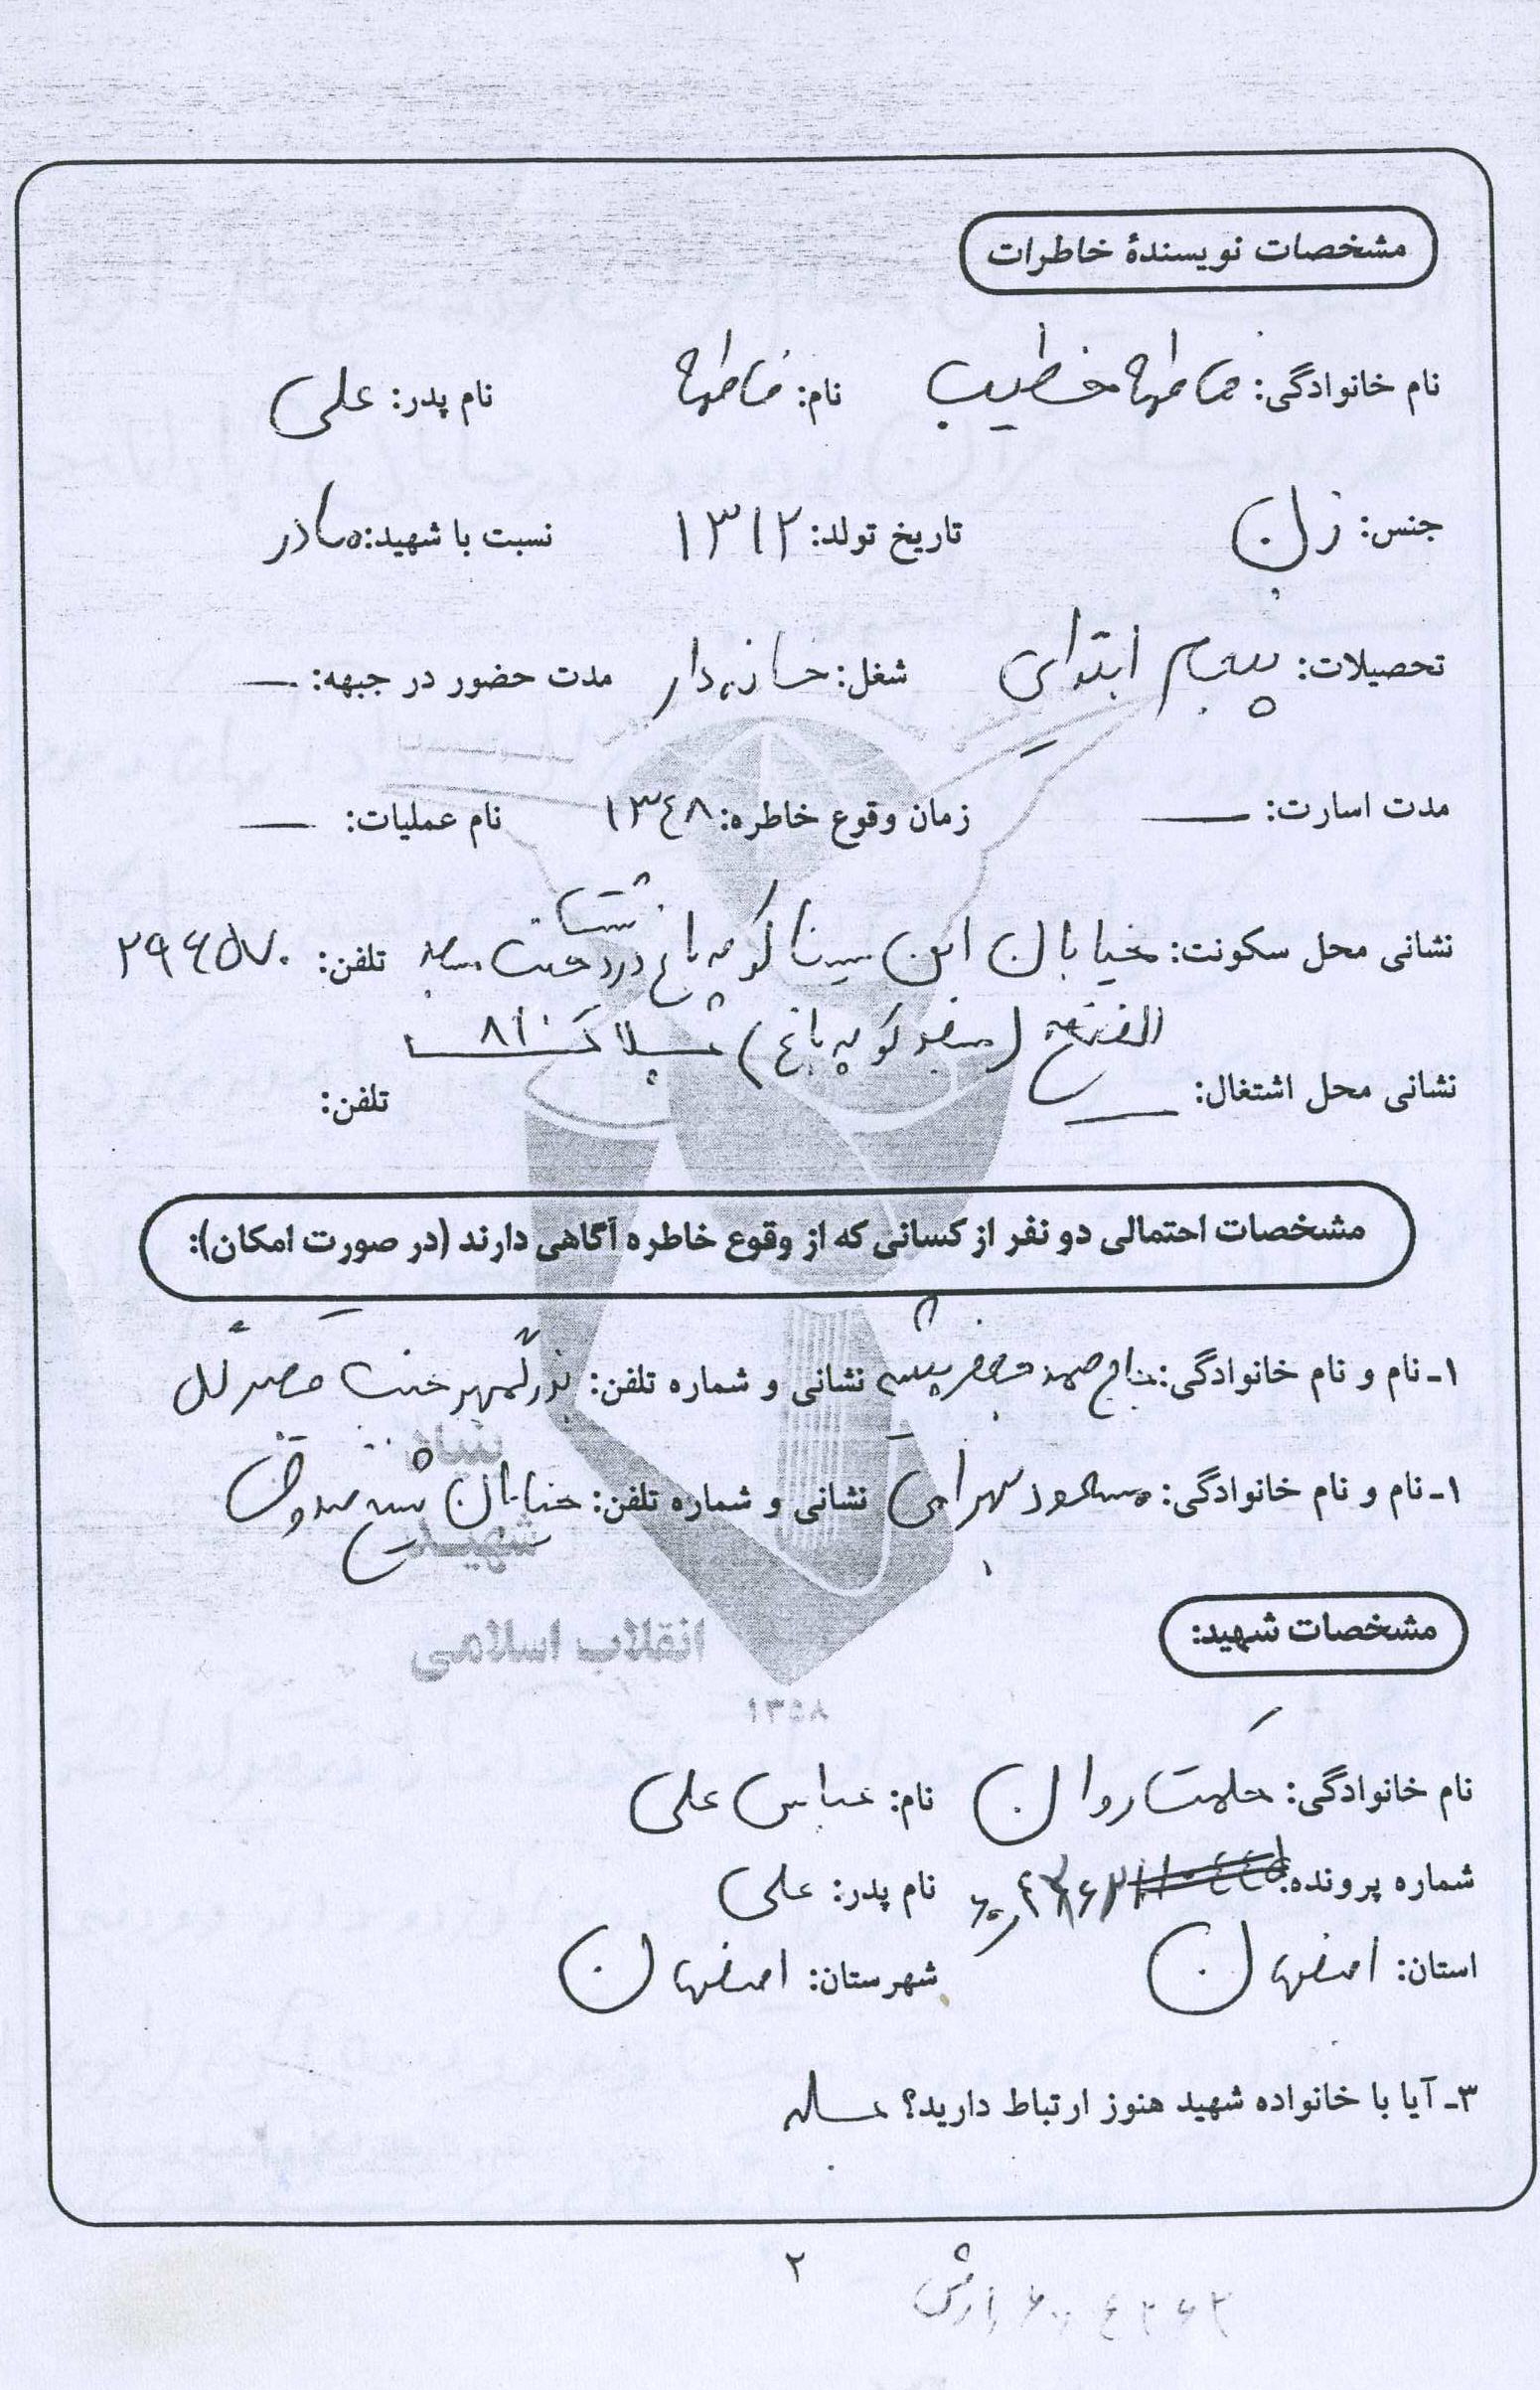 مشخصات نویسندهٔ خاطرات
نام خانوادگی: فاطمه خطیب نام: فاطمه نام پدر: علی
جنس: زن تاریخ تولد: ۱۳۱۲ نسبت با شهید: مادر
تحصیلات: پنجم ابتدایی شغل: خانه دار مدت حضور در جبهه: —
مدت اسارت: — زمان وقوع خاطره: ۱۳۴۸ نام عملیات: —
نشانی محل سکونت: خیابان ابن سینا کوچه باغ درددشت تلفن: ۲۹۶۵۷۰
الفتح ( کوچه باغ) پلاک ۸۱
نشانی محل اشتغال: — تلفن:
مشخصات احتمالی دو نفر از کسانی که از وقوع خاطره آگاهی دارند (در صورت امکان):
۱ـ نام و نام خانوادگی: حاج صمد نشانی و شماره تلفن: بزرگمهر
۱ـ نام و نام خانوادگی: مسعود بهرامی نشانی و شماره تلفن: خیابان شیخ صدوق
بنیاد
شهید
انقلاب اسلامی
۱۳۵۸
مشخصات شهید:
نام خانوادگی: حکمت روان نام: عباس علی
شماره پرونده: نام پدر: علی
استان: اصفهان شهرستان: اصفهان
۳ـ آیا با خانواده شهید هنوز ارتباط دارید؟ بله
۲